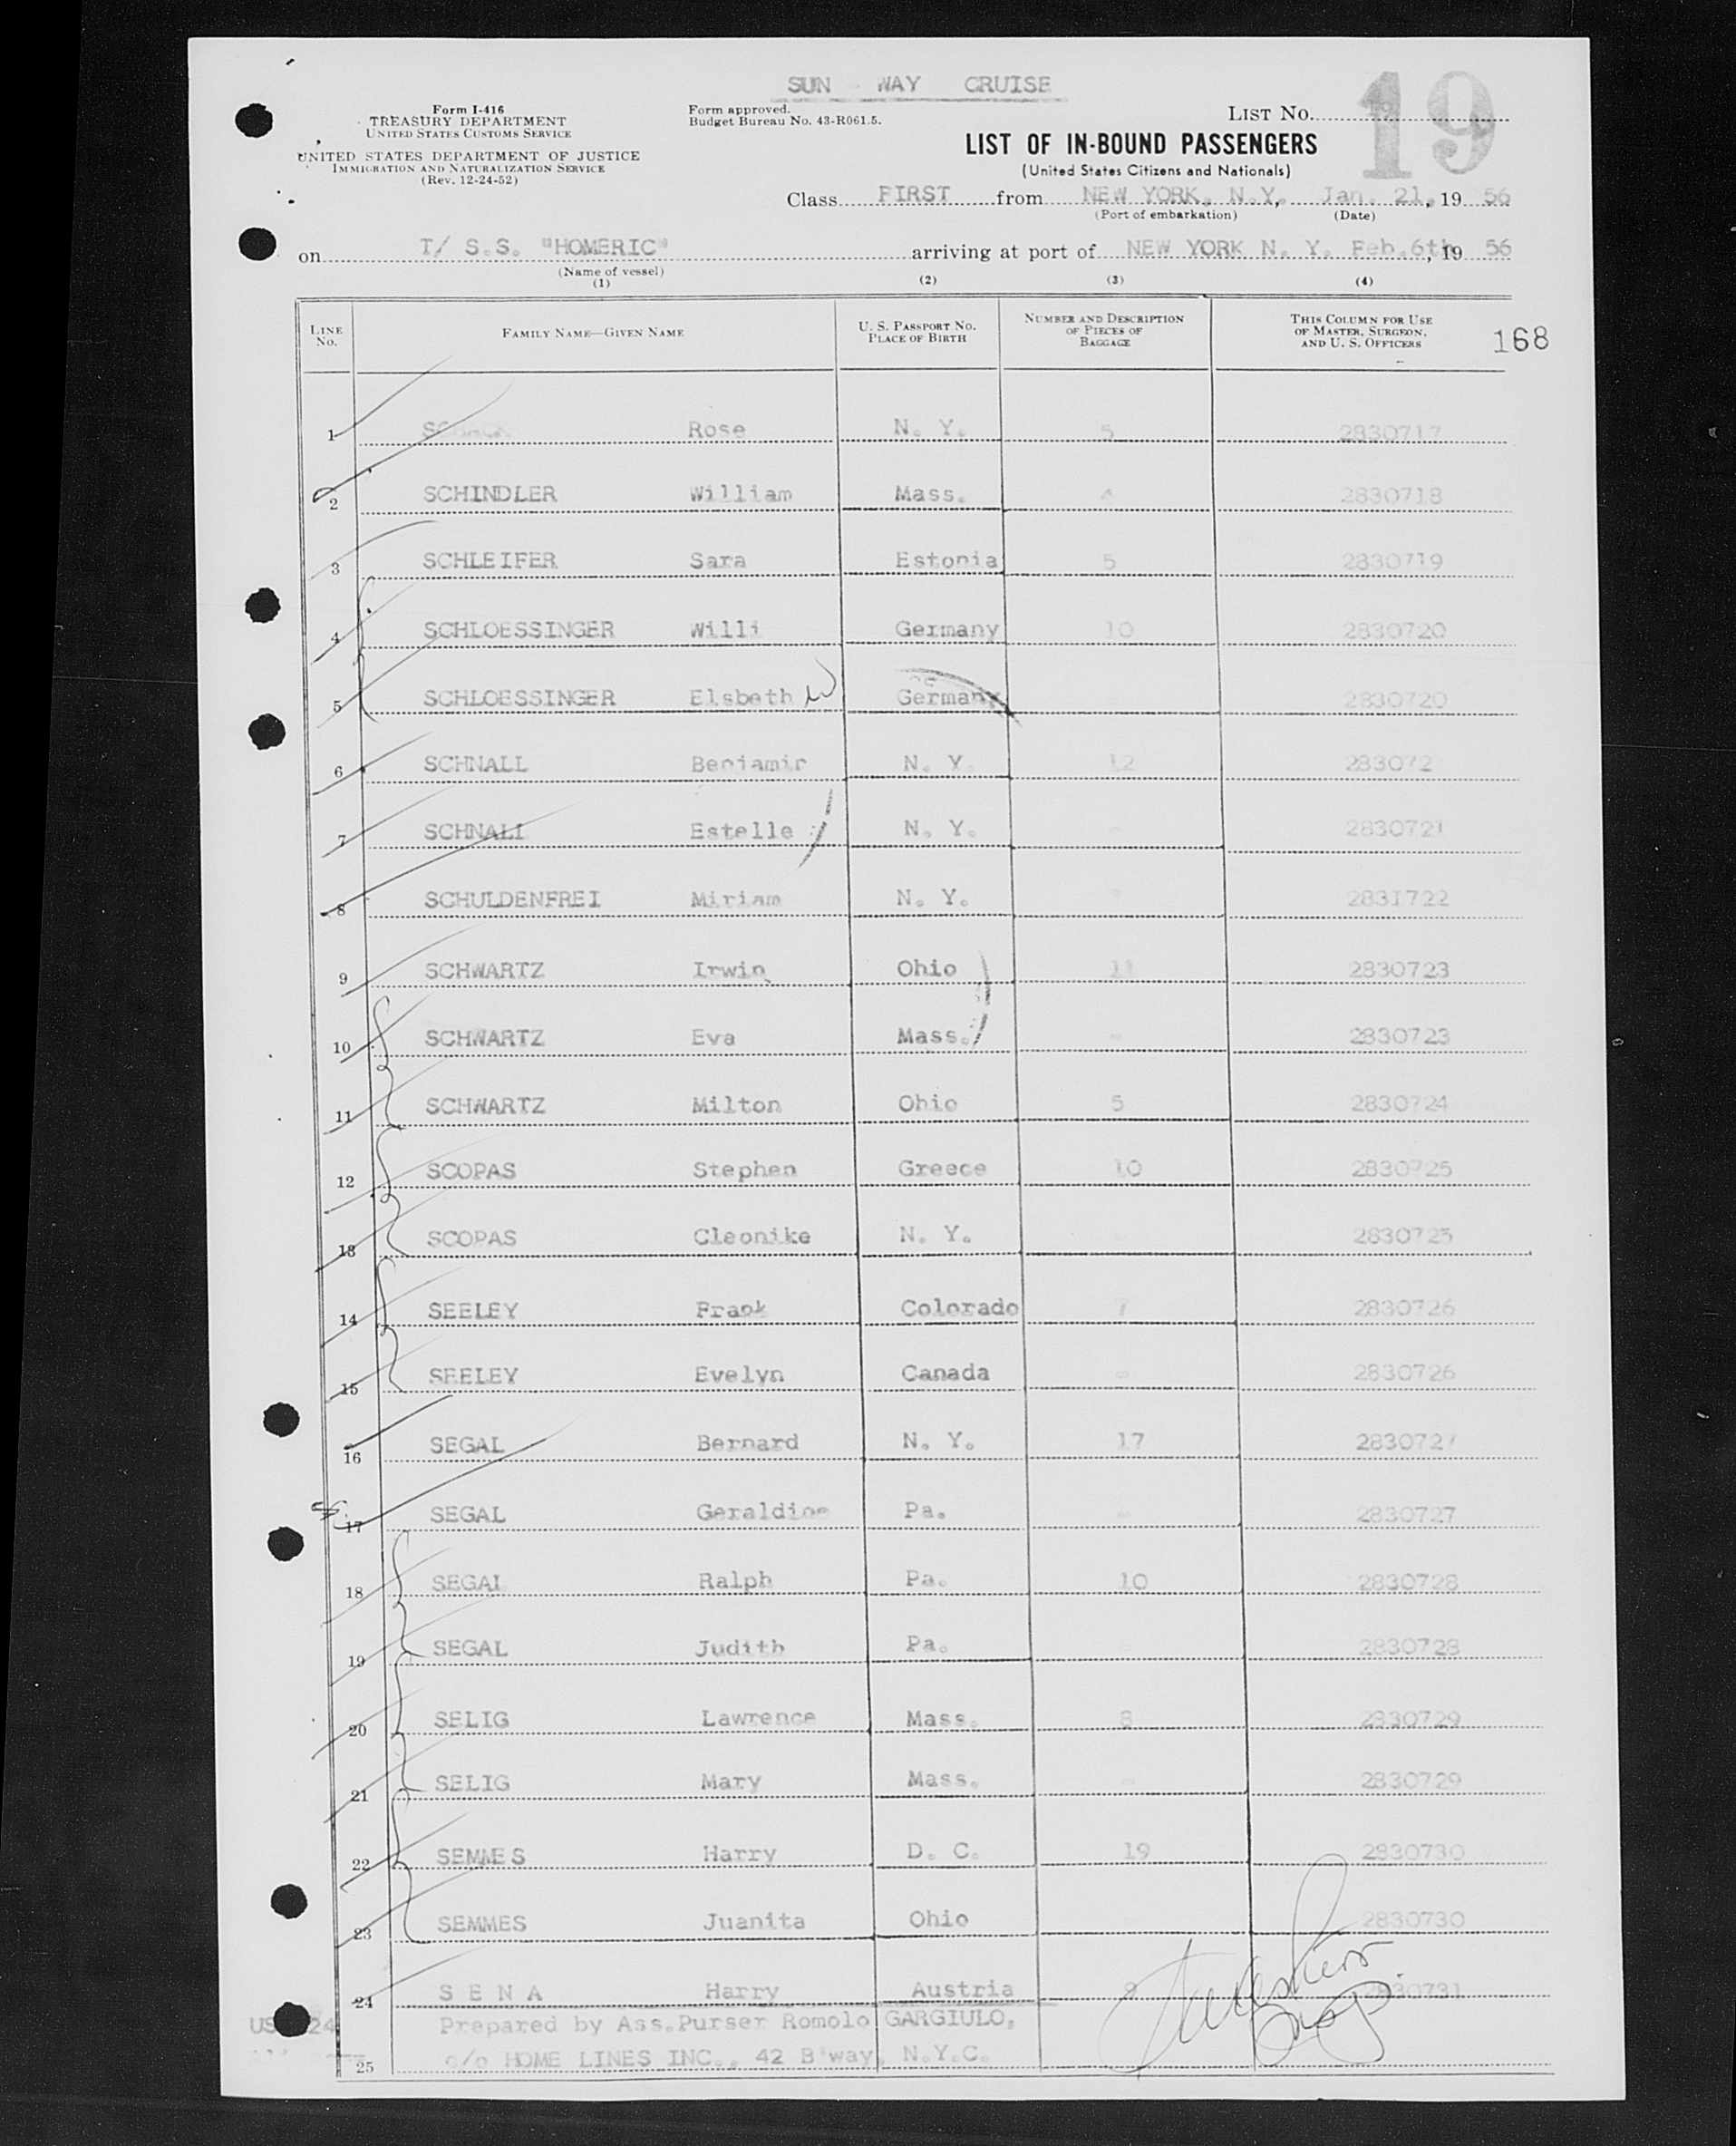 SUN WAY CRUISE
Form I-416
TREASURY DEPARTMENT
UNITED STATES CUSTOMS SERVICE
UNITED STATES DEPARTMENT OF JUSTICE
IMMIGRATION AND NATURALIZATION SERVICE
(Rev. 12-24-52)
Form approved.
Budget Bureau No. 43-R061.5.
LIST No. 19
LIST OF IN-BOUND PASSENGERS
(United States Citizens and Nationals)
Class FIRST from NEW YORK, N.Y., Jan. 21, 19 56
(Port of embarkation) (Date)
on T/ S.S. "HOMERIC" arriving at port of NEW YORK N. Y. Feb.6th, 19 56
(Name of vessel)
(1) (2) (3) (4)
LINE No. FAMILY NAME—GIVEN NAME U. S. PASSPORT No. PLACE OF BIRTH NUMBER AND DESCRIPTION OF PIECES OF BAGGAGE THIS COLUMN FOR USE OF MASTER, SURGEON, AND U. S. OFFICERS
168
1 Rose N. Y. 5 2830717
2 SCHINDLER William Mass. 2830718
3 SCHLEIFER Sara Estonia 5 2830719
4 SCHLOESSINGER Willi Germany 10 2830720
5 SCHLOESSINGER Elsbeth W Germany 2830720
6 SCHNALL Benjamin N. Y. 12 283072
7 SCHNALL Estelle N. Y. - 2830721
8 SCHULDENFREI Miriam N. Y. 2831722
9 SCHWARTZ Irwin Ohio 11 2830723
10 SCHWARTZ Eva Mass. - 2830723
11 SCHWARTZ Milton Ohio 5 2830724
12 SCOPAS Stephen Greece 10 2830725
13 SCOPAS Cleonike N. Y. 2830725
14 SEELEY Frank Colorado 7 2830726
15 SEELEY Evelyn Canada - 2830726
16 SEGAL Bernard N. Y. 17 2830727
17 SEGAL Geraldine Pa. - 2830727
18 SEGAL Ralph Pa. 10 2830728
19 SEGAL Judith Pa. - 2830728
20 SELIG Lawrence Mass. 8 2830729
21 SELIG Mary Mass. - 2830729
22 SEMMES Harry D. C. 19 2830730
23 SEMMES Juanita Ohio 2830730
24 S E N A Harry Austria 2830731
US 24 Prepared by Ass.Purser Romolo GARGIULO,
25 c/o HOME LINES INC., 42 B'way, N.Y.C.